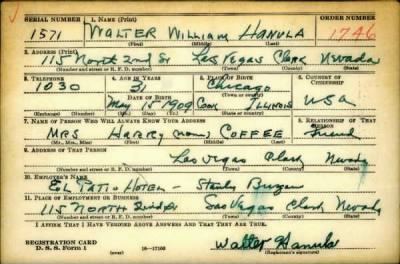 SERIAL NUMBER 1. NAME (Print) ORDER NUMBER
1571 WALTER WILLIAM HANULA 1746
(First) (Middle) (Last)
2. ADDRESS (Print)
115 North 2nd St Las Vegas Clark Nevada
(Number and street or R. F. D. number) (Town) (County) (State)
3. TELEPHONE 4. AGE IN YEARS 5. PLACE OF BIRTH 6. COUNTRY OF CITIZENSHIP
1030 31 Chicago
DATE OF BIRTH (Town or county)
May 15 1909 Cook Illinois USA
(Mo.) (Day) (Yr.) (State or country)
7. NAME OF PERSON WHO WILL ALWAYS KNOW YOUR ADDRESS 8. RELATIONSHIP OF THAT PERSON
MRS HARRY COFFEE friend
(Mr., Mrs., Miss) (First) (Middle) (Last)
9. ADDRESS OF THAT PERSON
Las Vegas Clark Nevada
(Number and street or R. F. D. number) (Town) (County) (State)
10. EMPLOYER'S NAME
HOTEL - Stanley
11. PLACE OF EMPLOYMENT OR BUSINESS
115 NORTH 2nd St Las Vegas Clark Nevada
(Number and street or R. F. D. number) (Town) (County) (State)
I AFFIRM THAT I HAVE VERIFIED ABOVE ANSWERS AND THAT THEY ARE TRUE.
REGISTRATION CARD
D. S. S. Form 1 16-17105 Walter Hanula
(Registrant's signature)